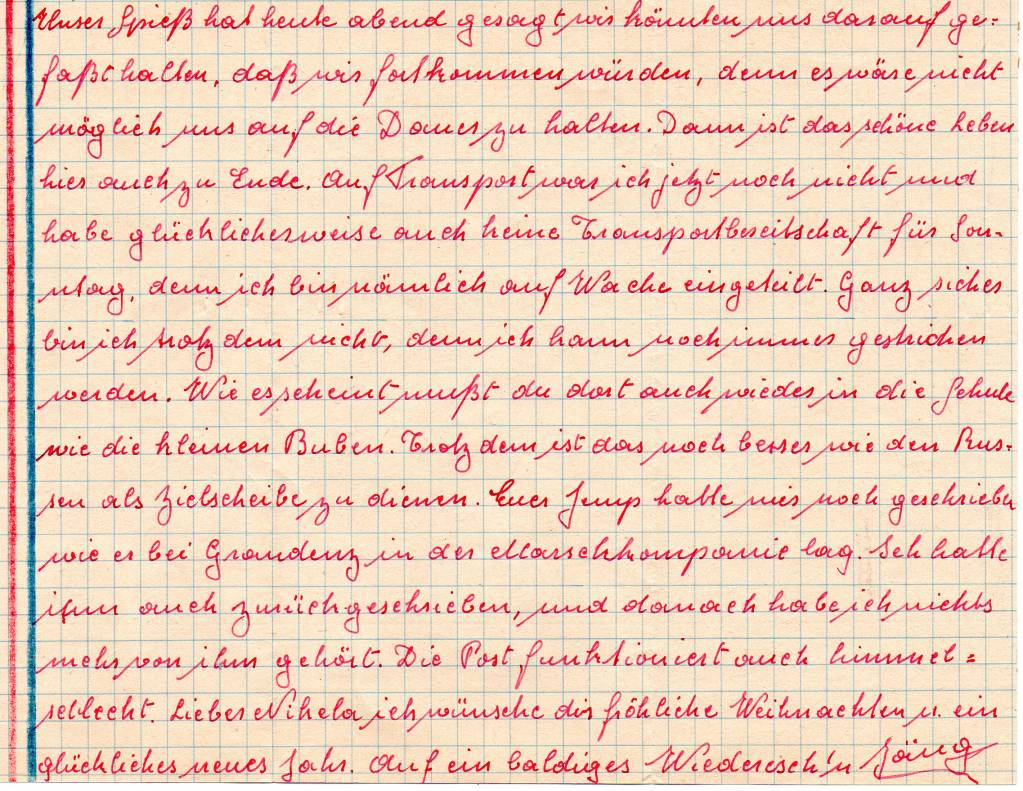 Unser Spieß hat heute abend gesagt wir könnten uns darauf ge-
faßt halten, daß wir fortkommen würden, denn es wäre nicht
möglich uns auf die Dauer zu halten. Dann ist das schöne Leben
hier auch zu Ende. Auf Transport war ich jetzt noch nicht und
habe glücklicherweise auch keine Transportbereitschaft für Son-
ntag, denn ich bin nämlich auf Wache eingeteilt. Ganz sicher
bin ich trotzdem nicht, denn ich kann noch immer gestrichen
werden. Wie es scheint mußt du dort auch wieder in die Schule
wie die kleinen Buben. Trotzdem ist das noch besser wie den Rus-
sen als Zielscheibe zu dienen. Euer Jemp hatte mir noch geschrieben
wie er bei Graudenz in der Marschkompanie lag. Ich hatte
ihm auch zurückgeschrieben, und danach habe ich nichts
mehr von ihm gehört. Die Post funktioniert auch himmel=
schlecht. Lieber Nikela ich wünsche dir fröhliche Weihnachten u. ein
glückliches neues Jahr. Auf ein baldiges Wiedersch'n